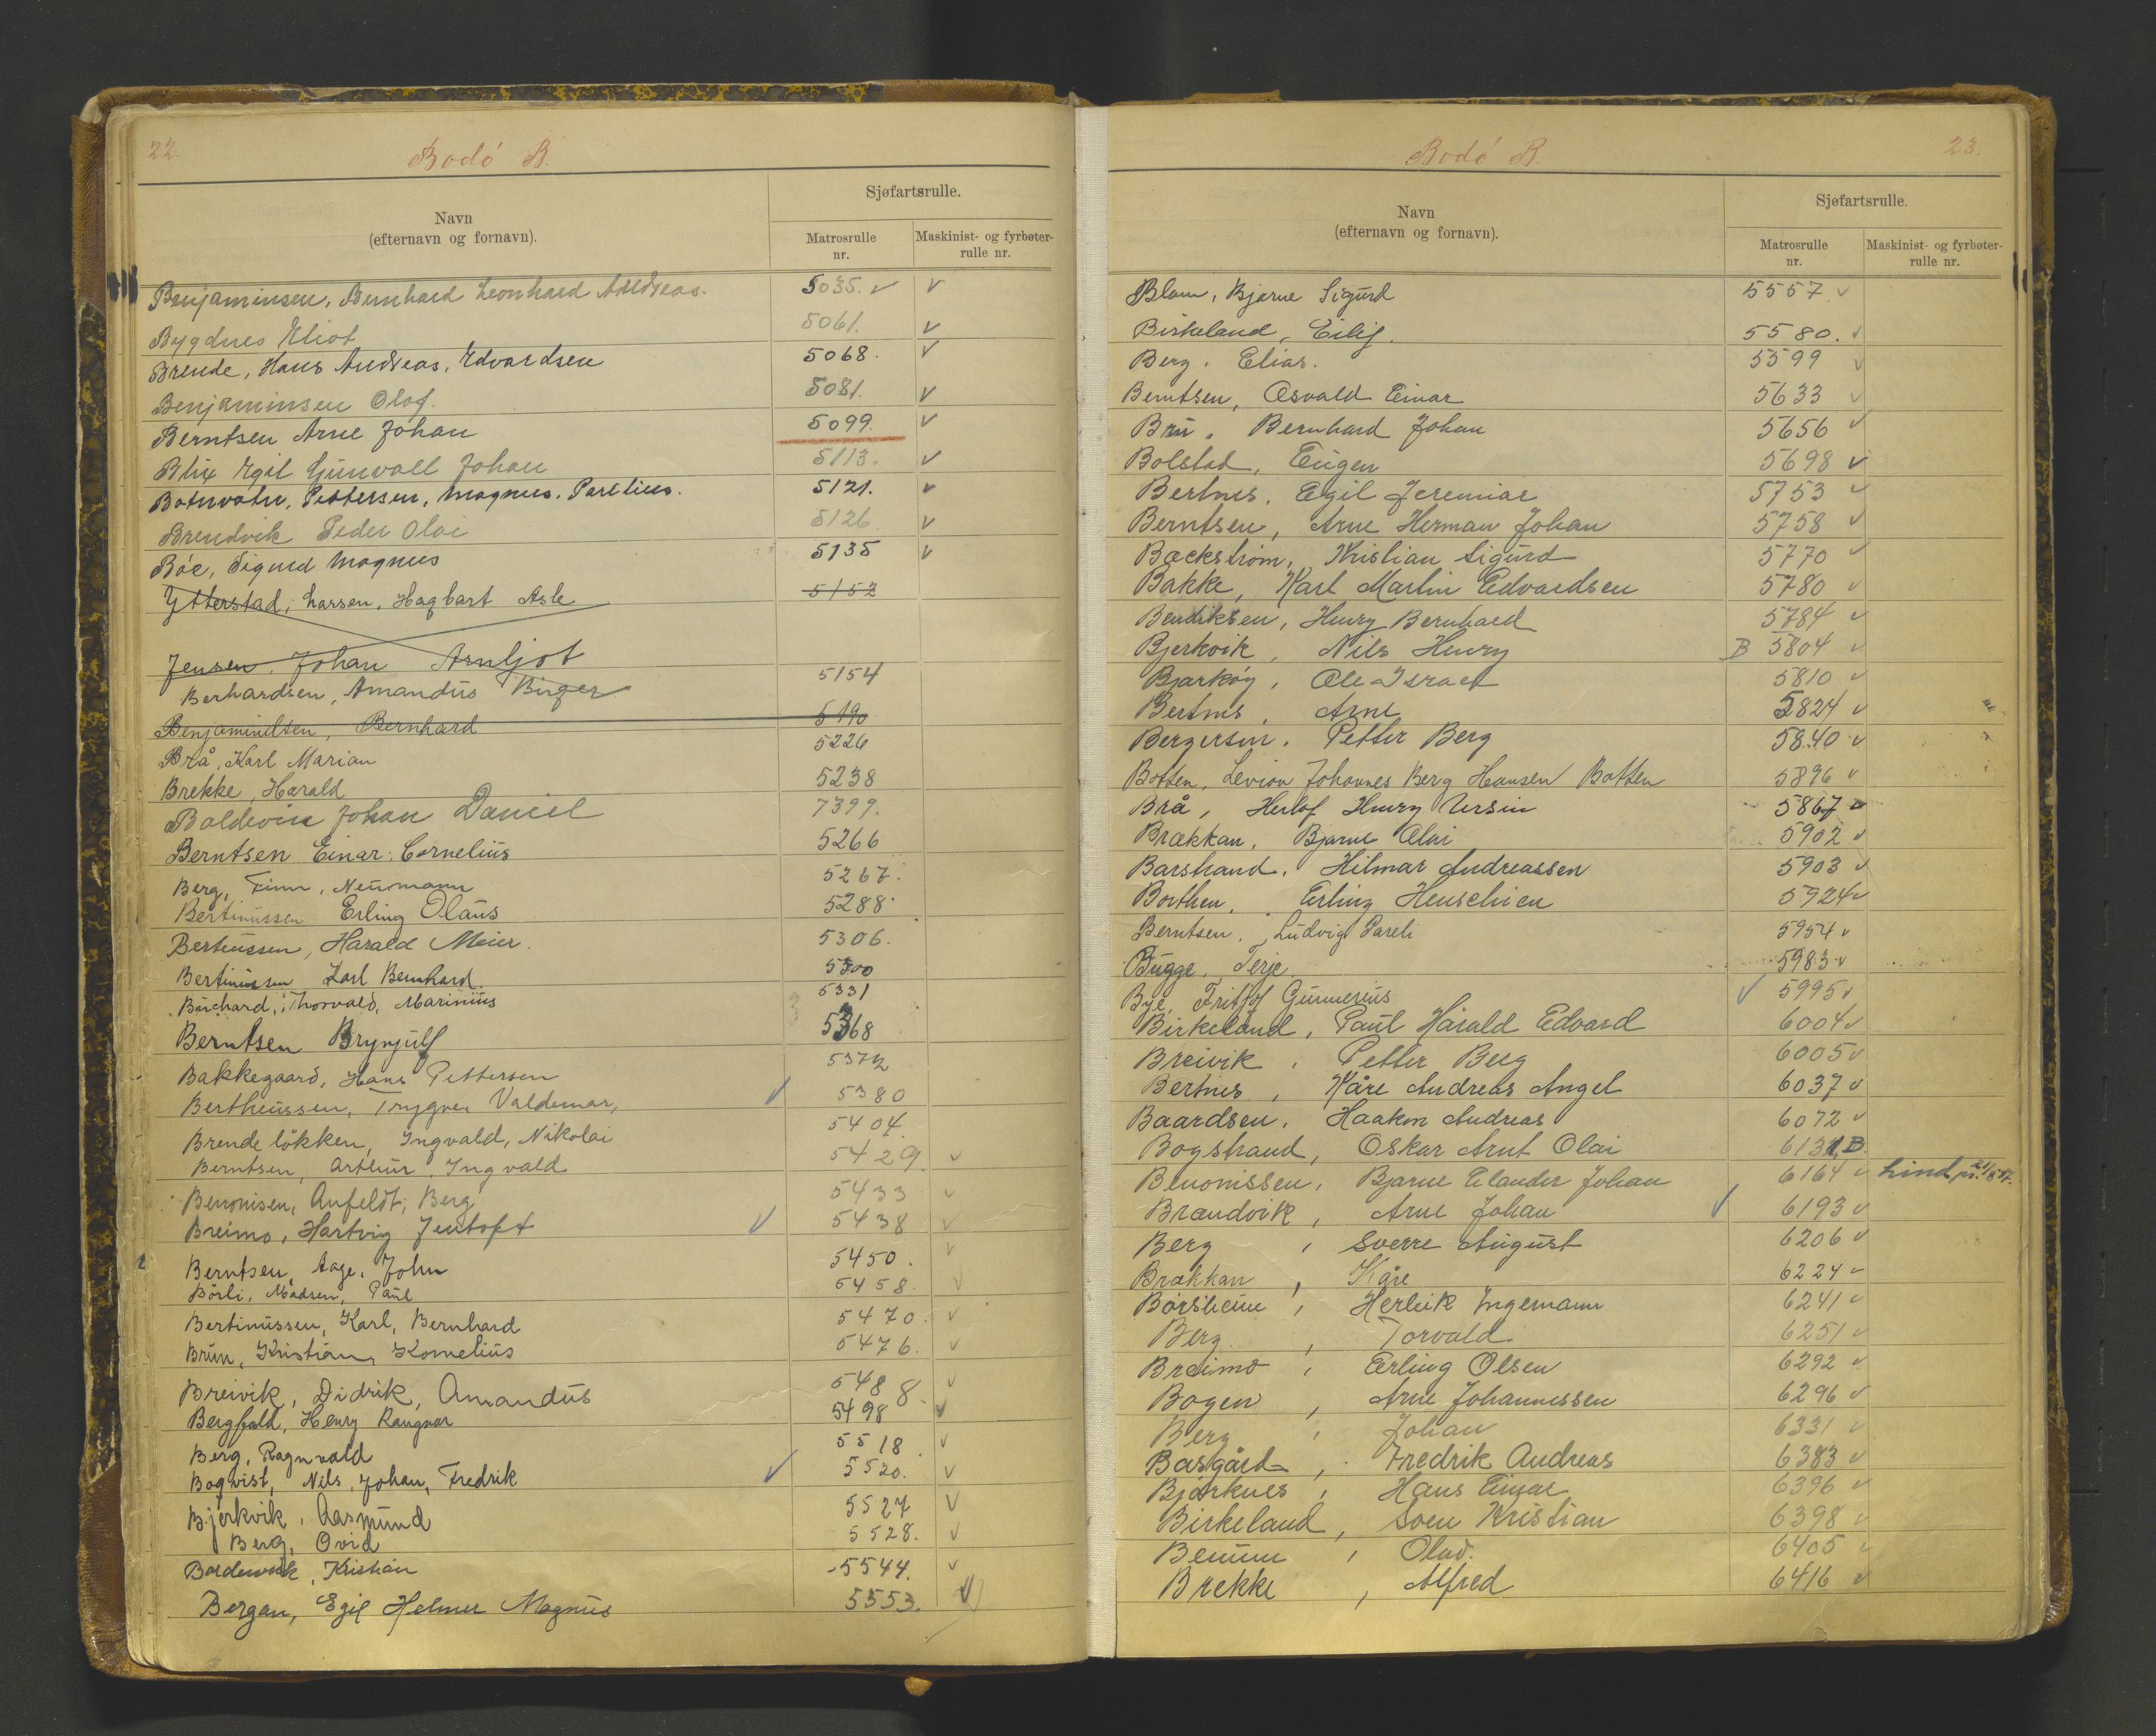 22.
Bodó B.
Navn
(efternavn og fornavn).
Sjøfartsrulle.
Matrosrulle
nr.
Maskinist- og fyrbøter-
rulle nr.
Benjaminsen, Bernhard Leonhard Andreas. 5035. v v
Bygdnes Eliot 5061. v
Brende, Hans Andreas, Edvardsen 5068. v
Benjaminsen Olof. 5081. v
Berntsen Arne Johan 5099. v
Blix Egil Gunvall Johan 5113. v
Botnvatn, Pettersen, Magnus, Parelius. 5121. v
Brendvik Peder Olai 5126 v
Bóe, Sigurd Magnus 5135 v
Ytterstad, Larsen, Hagbart Asle 5152
Jensen Johan Arnljot
Berhardsen, Amandus Birger 5154
Benjamindtsen, Bernhard 5190
Brå, Karl Marian 5226
Brekke, Harald 5238
Baldevin Johan Daniel 7399.
Berntsen Einar Cornelius 5266
Berg, Finn, Neumann 5267.
Bertinussen Erling Olaus 5288.
Berteussen, Harald Meier. 5306.
Bertinussen Karl Bernhard 5300
Buchard, Thorvald, Marinius 5331
Berntsen Brynjulf 5368
Bakkegaard, Hans Pettersen 5372
Bertheussen, Trygve, Valdemar, v 5380
Brendeløkken, Ingvald, Nikolai 5404.
Berntsen, Arthur Ingvald 5429. v
Benonisen, Anfeldt, Berg 5433 v
Breimo, Hartvig Jentoft v 5438 v
Berntsen, Aage, John 5450. v
Börli, Madsen, Paul 5458. v
Bertinussen, Karl, Bernhard 5470. v
Brun, Kristian, Kornelius 5476. v
Breivik, Didrik, Amandus 5488. v
Bergfald, Henry Rangnar 5498 v
Berg, Ragnvald 5518. v
Boqvist, Nils, Johan, Fredrik v 5520. v
Bjerkvik, Aasmund 5527 v
Berg, Ovid 5528. v
Bordewick, Kristian 5544. v
Bergan, Egil Helmer Magnus 5553. v
Bodó B. 23.
Navn
(efternavn og fornavn).
Sjøfartsrulle.
Matrosrulle
nr.
Maskinist- og fyrbøter-
rulle nr.
Blom, Bjarne Sigurd 5557. v
Birkeland, Eilif. 5580. v
Berg. Elias. 5599 v
Berntsen, Osvald Einar 5633 v
Bru. Bernhard Johan 5656 v
Bolstad, Eugen 5698 v
Bertnes, Egil Jeremiae 5753 v
Berntsen, Arne Herman Johan 5758 v
Backstrøm, Kristian Sigurd 5770 v
Bakke, Karl Martin Edvardsen 5780 v
Bendiksen, Henry Bernhard 5784 v
Bjerkvik, Nils Henry B 5804 v
Bjarkøy, Ole Israel 5810 v
Bertnes, Arne 5824 v
Bergersen, Petter Berg 5840 v
Botten, Johannes Berg Hansen Botten 5896 v
Brå, Herlof Henry Ursin 5867 v
Brækkan, Bjarne Olai 5902 v
Barstrand, Hilmar Andreassen 5903 v
Borthen, Erling Henschien 5924 v
Berntsen, Ludvig Pareli 5954 v
Bugge, Terje 5983 v
Bye, Fritjof Gunnerius v 5995 v
Birkeland, Paul Harald Edvard 6004 v
Breivik, Petter Berg 6005 v
Bertnes, Kåre Andreas Angel 6037 v
Baardsen, Haakon Andreas 6072 v
Bogstrand, Oskar Arnt Olai 6131 B.
Benonissen, Bjarne Elander Johan 6164 v
Brandvik, Arne Johan v 6193 v
Berg, Sverre August 6206 v
Brækkan, Kåre 6224 v
Børsheim, Herleik Ingemann 6241 v
Berg, Torvald 6251 v
Breimo, Erling Olsen 6292 v
Bogen, Arne Johannessen 6296 v
Berg, Johan 6331 v
Basgård, Fredrik Andreas 6383 v
Bjørknes, Hans Einar 6396 v
Birkeland, Sven Kristian 6398 v
Benum, Olav. 6405 v
Brekke, Alfred 6416 v